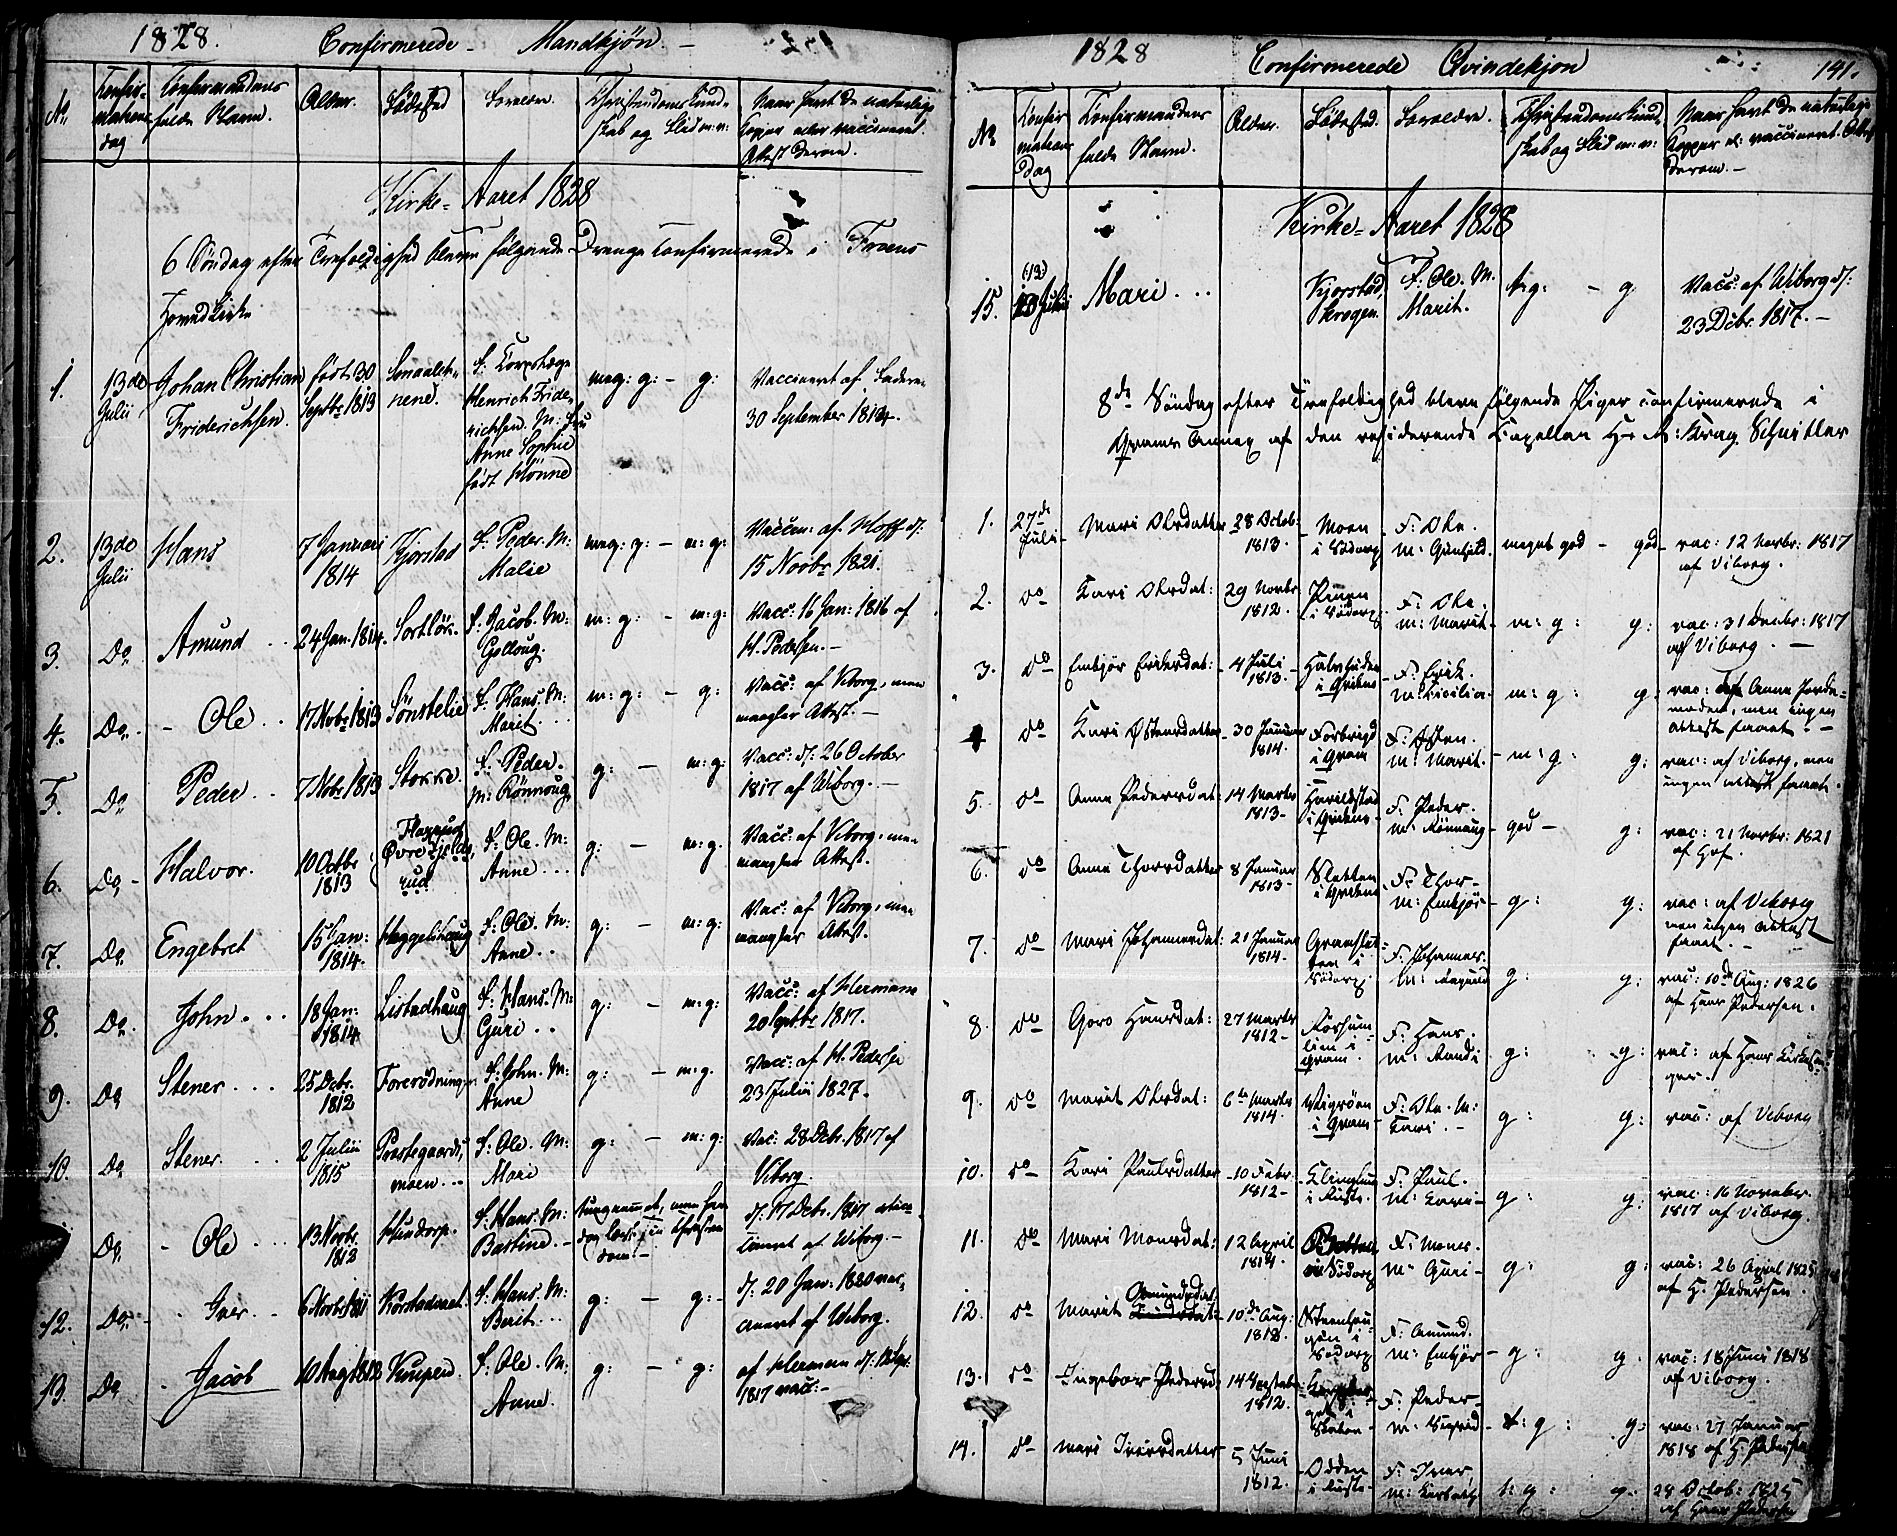 1828. Confirmerede - Mandkjøn. -
No
Confirmations dag
Confirmandens fulde Navn.
Alder.
Fødested
Forældre.
Christendoms Kundskab og Flid m: v:
Naar havt de naturlige Kopper eller vaccineret. Attest derom.
Kirke-Aaret 1828
6 Søndag efter Trefoldighed bleve følgende Drenge Confirmerede i Froens
Hovedkirke
1. 13de Julii Johan Christian Friderichsen. født 30 Septbr 1813 F. Corpslæge Henrich Friderichsen. M: Fru Anne Sophie født Mønne meg: g: - g: Vaccineret af 30 September 1814.
2. 13de Julii Hans 7 Januari 1814 Kjorstad F. Peder. M: Malie meg: g: - m: g: Vaccin: af Hoff d: 15 Novbr 1821.
3. Do Amund 24 Jan. 1814. F. Jacob. M: Golloug m: g: - m: g: Vacc: 16 Jan: 1816 af H. Pedersen. -
4. Do - Ole 17 Nobr 1813 Sönstelie F. Hans. M. Marit. m: g: - g: Vacc: af Viborg, men mangler Attest. -
5. Do Peder 7 Nobr 1813 Storrie F. Peder. M: Rönnoug g: - m: g: Vacc: d: 26 October 1817 af Wiborg. -
6. Do - Halvor. 10 Octbr 1813 Øvre F. Ole. M. Anne g: - m: g: Vacc: af Viborg, men mangler Attest.
7. Do Engebret 15 Jan: 1814. Heggelihaug F. Ole. M: Anne g: - m: g: Vac: af Viborg, men mangler Attest.
8. Do John 18 Jan: 1814 Listadhaug F. Hans. M: Guri g: - m: g: Vacc: af Hermann 20 Septbr 1817.
9. Do Stener 25 Debr. 1812 F. John. M: Anne g: - m: g. Vacc: af H. Pedersen 23 Julii 1827.
10. Do Stener. 2 Julii 1815 Præstegaards, moen. F. Ole. M: Mari g: - m: g: Vac: 28 Debr. 1817 af Viborg.
Do - Ole 13 Novbr. 1812 Hundorp. F. Hans. M: Bastine. - tungnemmet, men d: 17 Debr. 1817 af Wiborg. -
12. Do - Iver 6 Novbr 1811 F. Hans. M: Berit. g: - g: - d: 20 Jan: 1820 af Wiborg.
13. Do - Jacob 10 Aug 1812 F. Ole. M: Anne. g: - g: af Herman d: 1817 vacc: -
1828 Confirmerede Qvindekjøn 141.
No
Confirmations Dag
Confirmandens fulde Navn.
Alder.
Fødested.
Forældre.
Christendoms Kundskab og Flid m: v:
Naar havt de naturlige Kopper el: vaccineret. Attest derom. -
Kirke-Aaret 1828
15. (13) Juli Mari Kjorstad, krogen F. Ole. M. Marit. g: - g Vacc: af Wiborg d: 23 Debr. 1817. -
8de Søndag efter Trefoldighed bleve følgende Piger confirmerede i
Qvams Annex af den residerende Capellan Hr A: Krag Schnitler
1. 27de Juli Mari Olsdatter 28 Octob: 1813. Moen i Södorp F: Ole. M: Gunhild. meget god - god - vac: 12 Novbr: 1817 af Viborg.
2. do Kari Olsdat: 29 Novbr 1812. i Södorp F: Ole. M: Marit - m: g: g: vac: 31 Decbr: 1817 af Viborg. -
3. do Embjør Eriksdat: 4 Juli 1813. F: Erik. M: Cicilia - m: g: g: vac: af Anne Jordemoder, men ingen attest havet. -
4 do Kari Østensdatter 30 Januar 1814. Forbrigd i Qvam F: Østen. M: Marit. - m: g: g: vac: af Viborg, men ingen attest havet.
5. do Anne Pedersdat: 14 Martz 1813 - Harildstad F: Peder. M: Rönnaug - god - g: vac: 21 Novbr: 1821 af Hof.
6. do Anne Thorsdatter 8 Januar 1813 - Sletten F: Thor - M: Embjør - g: g: vac: af Viborg men ingen attest havet. -
7. do Mari Johannesdat: 21 Januar 1814. i Södorp F: Johannes. g: g: vac: 10de Aug: 1826 af Hans Pedersen.
8. do Goro Hansdat: 27 Martz 1812 - i Qvam. F: Hans. M: Randi g: g: vac: af Hans
9. do Marit Olsdat: 6te Martz 1814. Vigröen i Qvam - F: Ole. M: Kari. - g: g: vac: af Viborg
10. do Kari Paulsdatter - 10 Febr. 1812 - F: Paul. M: Kari - g: g: vac: 16 November 1817 af Viborg.
11. do Mari Monsdat: 12 April 1814. i Södorp F: Mons. M: Guri - g: g: vac: 26 April 1825 af H. Pedersen.
12. do Marit Amundsdat: 10de Aug: 1812. i Södorp F: Amund. M: Embjør - g: g: vac: 18 Juni 1818 af Viborg.
13. do Ingebor Pedersd: 1812. F: Peder - M: Sigrid - t: g: g: vac: 27 Januar 1818 af H. Pedersen
14. do Mari Iversdatter 5 Juni 1812. Odden F: Iver, t: g: g: 28 Octob: 1825 af Hans Pedersen